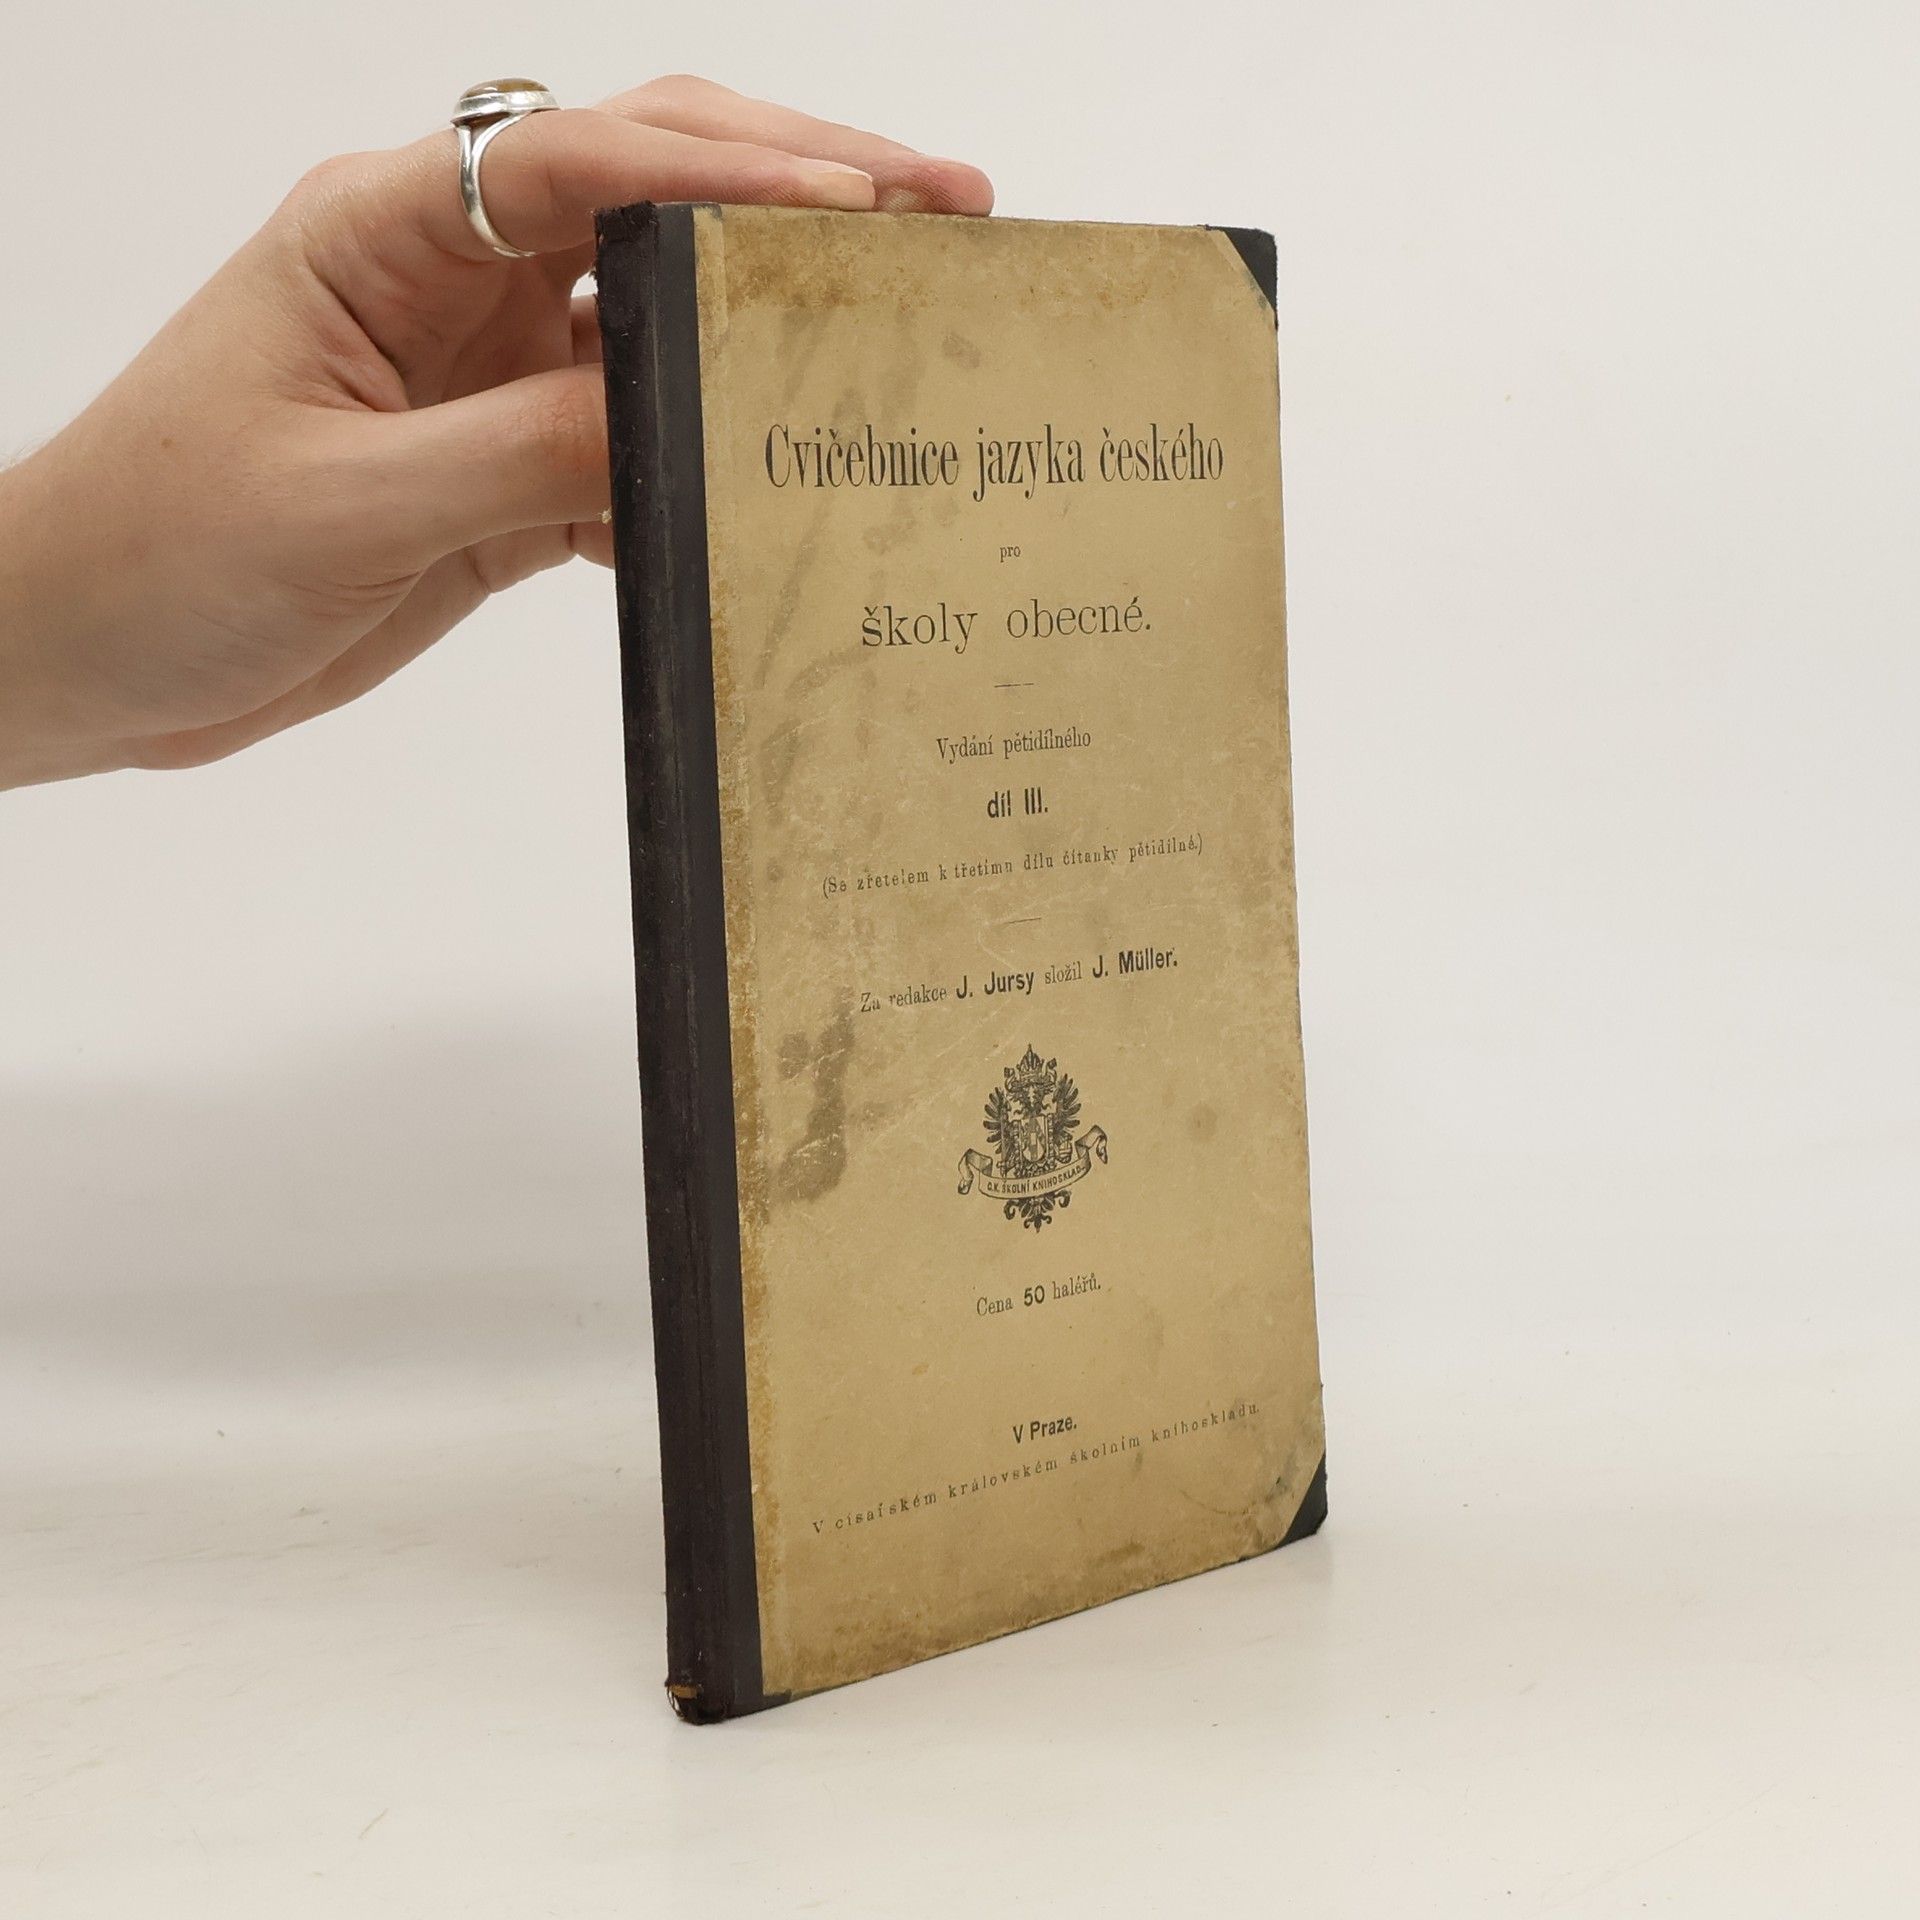 Cvičebnice jazyka českého
pro
školy obecné.
Vydání pětidílného
díl III.
(Se zřetelem k třetímu dílu čítanky pětidílné.)
Za redakce J. Jursy složil J. Müller.
C.K. ŠKOLNÍ KNIHOSKLAD
Cena 50 haléřů.
V Praze.
V císařském královském školním knihoskladu.